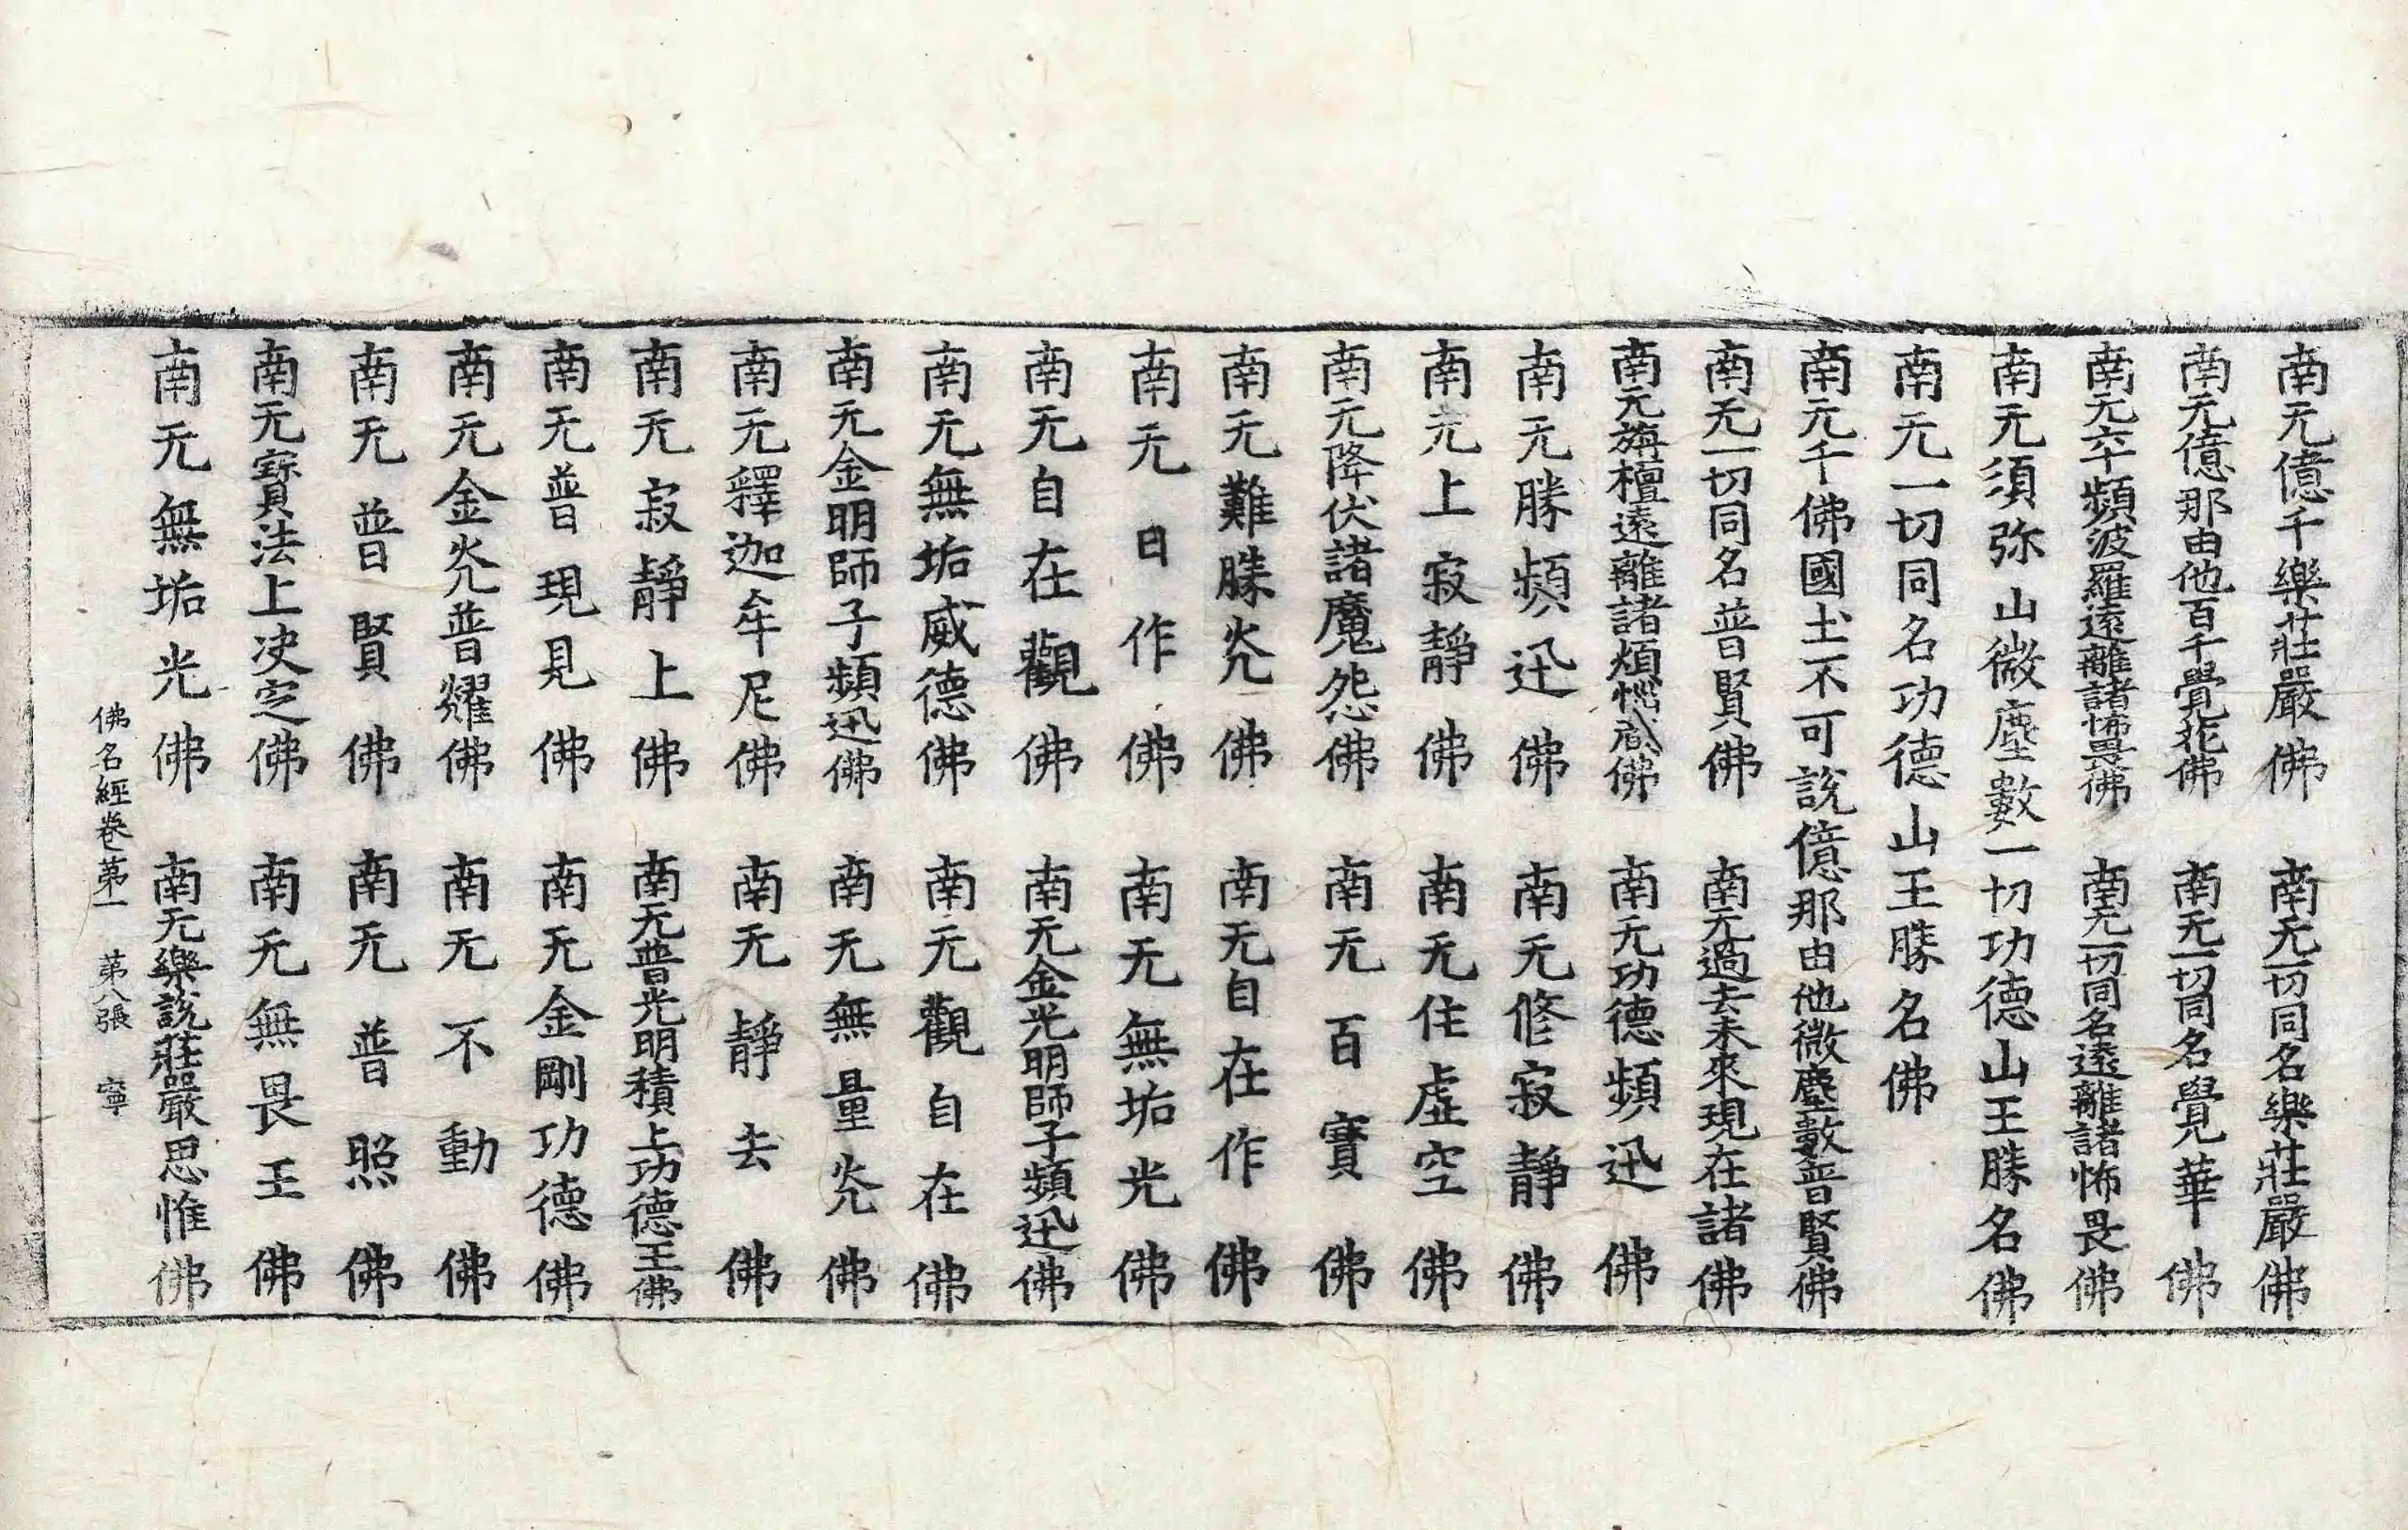 南无億千樂莊嚴佛 南无一切同名樂莊嚴佛
南无億那由他百千覺花佛 南无一切同名覺華佛
南无六十頻波羅遠離諸怖畏佛 南无一切同名遠離諸怖畏佛
南无須弥山微塵數一切功德山王勝名佛
南无一切同名功德山王勝名佛
南无千佛國土不可說億那由他微塵數普賢佛
南无一切同名普賢佛 南无過去未來現在諸佛
南无旃檀遠離諸煩惱藏佛 南无功德頻迅佛
南无勝頻迅佛 南无修寂靜佛
南无上寂靜佛 南无住虛空佛
南无降伏諸魔怨佛 南无百寶佛
南无難勝炎佛 南无自在作佛
南无日作佛 南无無垢光佛
南无自在觀佛 南无金光明師子頻迅佛
南无無垢威德佛 南无觀自在佛
南无金明師子頻迅佛 南无無量炎佛
南无釋迦牟尼佛 南无靜去佛
南无寂靜上佛 南无普光明積上功德王佛
南无普現見佛 南无金剛功德佛
南无金炎普耀佛 南无不動佛
南无普賢佛 南无普照佛
南无寶法上決定佛 南无無畏王佛
南无無垢光佛 南无樂說莊嚴思惟佛
佛名經卷第一 第八張 寧